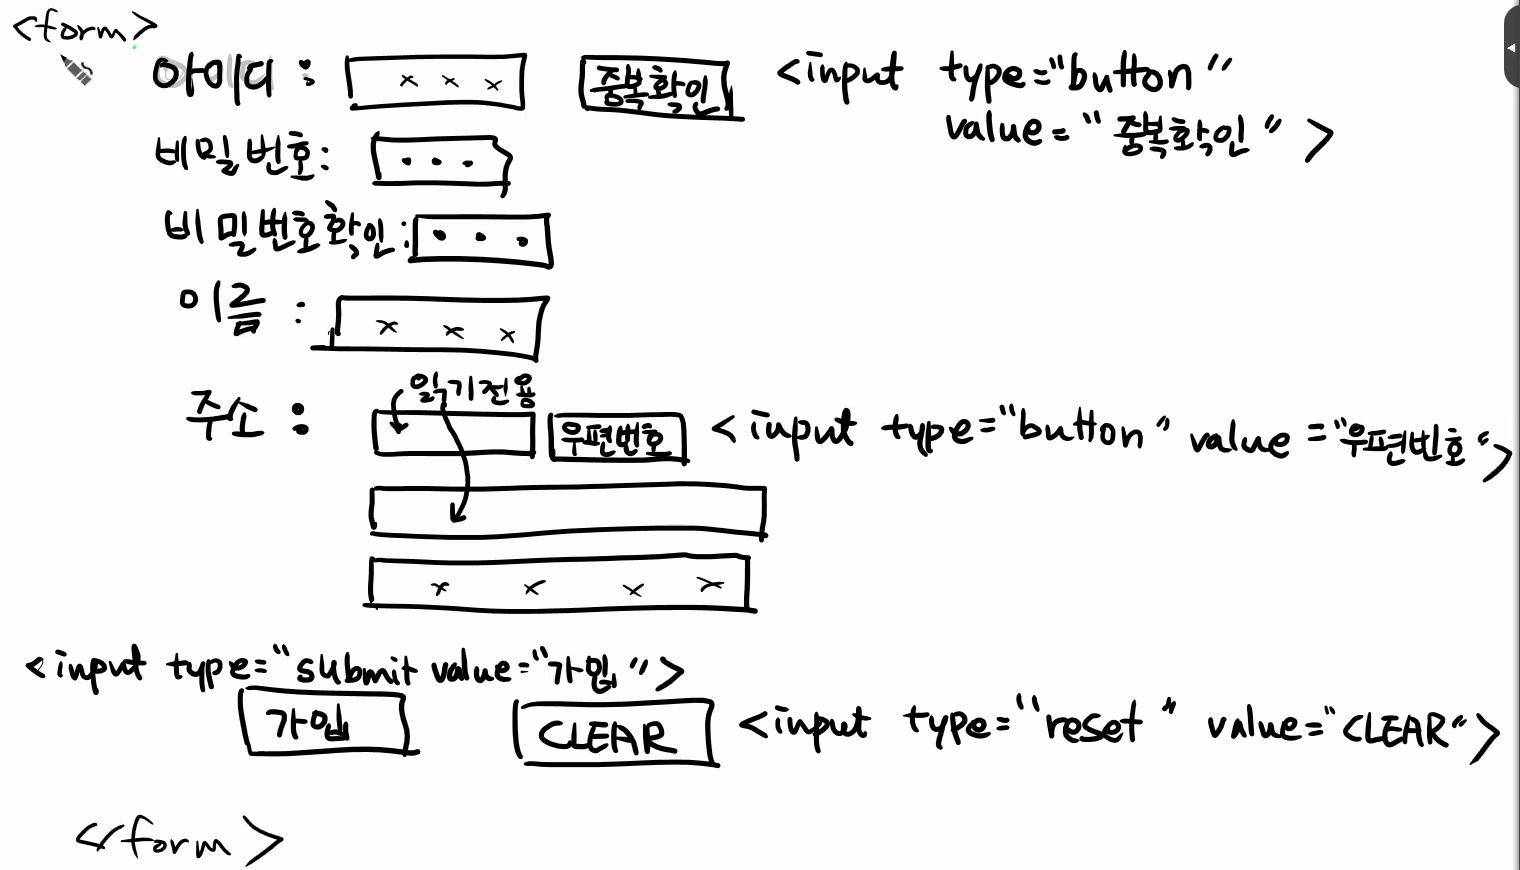 <form>
아이디 : x x x 중복확인 <input type="button"
value="중복확인">
비밀번호: • • •
비밀번호확인: • • •
이름 : x x x
읽기전용
주소 : 우편번호 <input type="button" value="우편번호">
x x x x
<input type="submit value="가입">
가입 CLEAR <input type="reset" value="CLEAR">
</form>